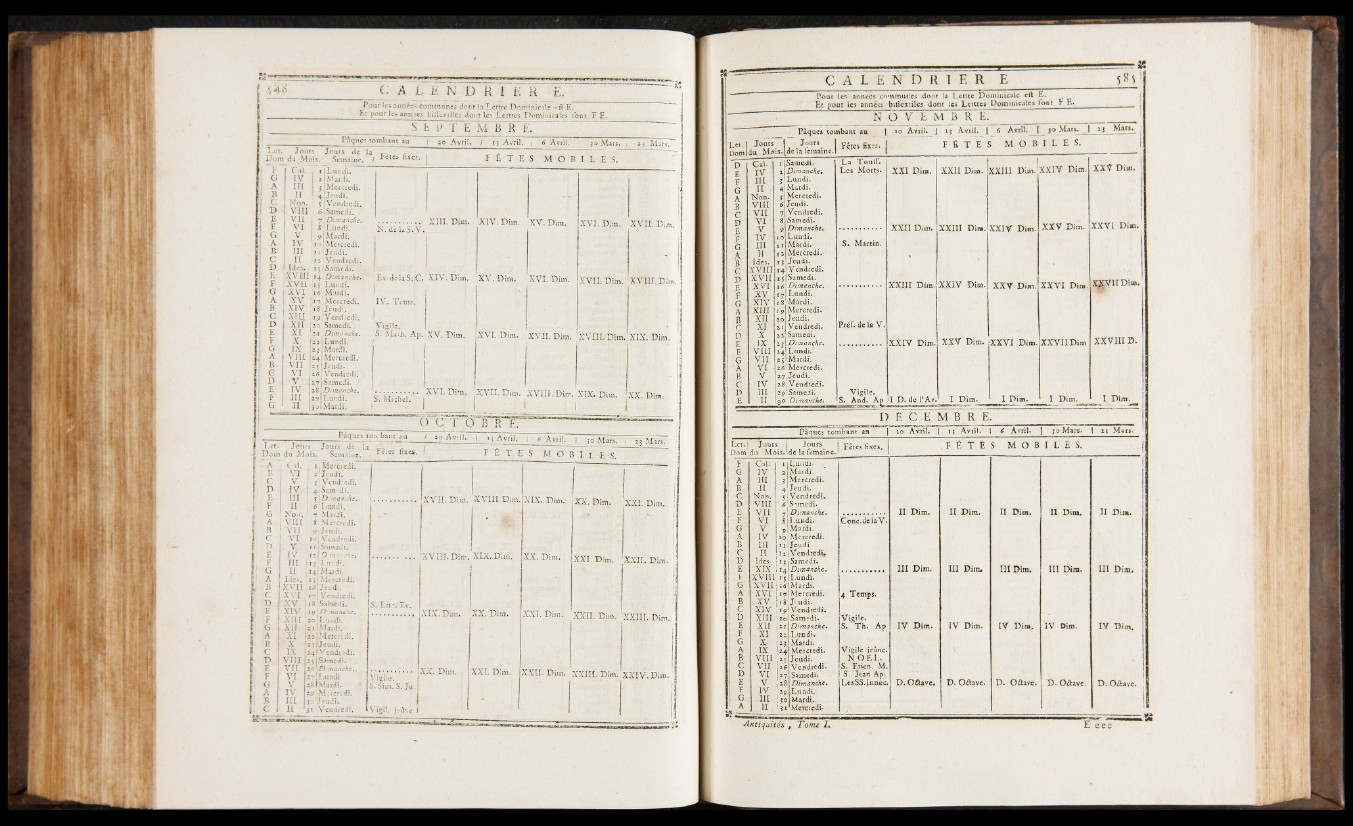 548 CALENDRIER E.
Pour les années communes dont la Lettre Dominicale est E.
Et pour les années bissextiles dont les Lettres Dominicales sont F E.
SEPTEMBRE.
Pâques tombant au | 20 Avril. | 13 Avril. | 6 Avril. | 30 Mars. | 23 Mars.
Let. Dom | Jours du Mois. | Jours de la Semaine. | Fêtes fixes. | FÊTES MOBILES.
F Cal. 1 Lundi.
G IV 2 Mardi.
A III 3 Mercredi.
B II 4 Jeudi.
C Non. 5 Vendredi.
D VIII 6 Samedi.
E VII 7 Dimanche. ........... XIII. Dim. XIV. Dim. XV. Dim. XVI. Dim. XVII. Dim.
F VI 8 Lundi. N. de la S. V.
G V 9 Mardi.
A IV 10 Mercredi.
B III 11 Jeudi.
C II 12 Vendredi.
D Ides. 13 Samedi.
E XVIII 14 Dimanche. Ex. de la S. C. XIV. Dim. XV. Dim. XVI. Dim. XVII. Dim. XVIII. Dim.
F XVII 15 Lundi.
G XVI 16 Mardi.
A XV 17 Mercredi. IV. Tems.
B XIV 18 Jeudi.
C XIII 19 Vendredi.
D XII 20 Samedi. Vigile.
E XI 21 Dimanche. S. Math. Ap. XV. Dim. XVI. Dim. XVII. Dim. XVIII. Dim. XIX. Dim.
F X 22 Lundi.
G IX 23 Mardi.
A VIII 24 Mercredi.
B VII 25 Jeudi.
C VI 26 Vendredi.
D V 27 Samedi.
E IV 28 Dimanche. ........... XVI. Dim. XVII. Dim. XVIII. Dim. XIX. Dim. XX. Dim.
F III 29 Lundi. S. Michel.
G II 30 Mardi.
OCTOBRE.
Pâques tombant au | 20 Avril. | 13 Avril. | 6 Avril. | 30 Mars. | 23 Mars.
Let. Dom | Jours du Mois. | Jours de la Semaine. | Fêtes fixes. | FÊTES MOBILES.
A Cal. 1 Mercredi.
B VI 2 Jeudi.
C V 3 Vendredi.
D IV 4 Samedi.
E III 5 Dimanche. ........... XVII. Dim. XVIII Dim. XIX. Dim. XX. Dim. XXI. Dim.
F II 6 Lundi.
G Non. 7 Mardi.
A VIII 8 Mercredi.
B VII 9 Jeudi.
C VI 10 Vendredi.
D V 11 Samedi.
E IV 12 Dimanche. ........... XVIII. Dim. XIX. Dim. XX. Dim. XXI. Dim. XXII. Dim.
F III 13 Lundi.
G II 14 Mardi.
A Ides. 15 Mercredi.
B XVII 16 Jeudi.
C XVI 17 Vendredi.
D XV 18 Samedi. S. Luc. Ev.
E XIV 19 Dimanche. ........... XIX. Dim. XX. Dim. XXI. Dim. XXII. Dim. XXIII. Dim.
F XIII 20 Lundi.
G XII 21 Mardi.
A XI 22 Mercredi.
B X 23 Jeudi.
C IX 24 Vendredi.
D VIII 25 Samedi.
E VII 26 Dimanche. ........... XX. Dim. XXI. Dim. XXII. Dim. XXIII. Dim. XXIV. Dim.
F VI 27 Lundi Vigile.
G V 28 Mardi. S. Sim. S. Ju.
A IV 29 Mercredi.
B III 30 Jeudi.
C II 31 Vendredi. Vigil. jeûne.
CALENDRIER E 585
Pour les années communes dont la Lettre Dominicale est E.
Et pour les années bissextiles dont les Lettres Dominicales sont F E.
NOVEMBRE.
Pâques tombant au | 20 Avril. | 13 Avril. | 6 Avril. | 30 Mars. | 23 Mars.
Let. Dom | Jours du Mois. | Jours de la semaine. | Fêtes fixes. | FÊTES MOBILES.
D Cal. 1 Samedi. La Touss.
E IV 2 Dimanche. Les Morts. XXI Dim. XXII Dim. XXIII Dim. XXIV Dim. XXV Dim.
F III 3 Lundi.
G II 4 Mardi.
A Non. 5 Mercredi.
B VIII 6 Jeudi.
C VII 7 Vendredi.
D VI 8 Samedi.
E V 9 Dimanche. ........... XXII Dim. XXIII Dim. XXIV Dim. XXV Dim. XXVI Dim.
F IV 10 Lundi.
G III 11 Mardi. S. Martin.
A II 12 Mercredi.
B Ides. 13 Jeudi.
C XVIII 14 Vendredi.
D XVII 15 Samedi.
E XVI 16 Dimanche. ........... XXIII Dim. XXIV Dim. XXV Dim. XXVI Dim. XXVII Dim.
F XV 17 Lundi.
G XIV 18 Mardi.
A XIII 19 Mercredi.
B XII 20 Jeudi.
C XI 21 Vendredi. Prés. de la V.
D X 22 Samedi.
E IX 23 Dimanche. ........... XXIV Dim. XXV Dim. XXVI Dim. XXVII Dim XXVIII D.
F VIII 24 Lundi.
G VII 25 Mardi.
A VI 26 Mercredi.
B V 27 Jeudi.
C IV 28 Vendredi.
D III 29 Samedi. Vigile.
E II 30 Dimanche. S. And. Ap I D. de l'Av. I Dim. I Dim. I Dim. I Dim.
DECEMBRE.
Pâques tombant au | 20 Avril. | 13 Avril. | 6 Avril. | 30 Mars. | 23 Mars.
Let. Dom | Jours du Mois. | Jours de la semaine. | Fêtes fixes. | FÊTES MOBILES.
F Cal. 1 Lundi.
G IV 2 Mardi.
A III 3 Mercredi.
B II 4 Jeudi.
C Non. 5 Vendredi.
D VIII 6 Samedi.
E VII 7 Dimanche. ........... II Dim. II Dim. II Dim. II Dim. II Dim.
F VI 8 Lundi. Conc. de la V.
G V 9 Mardi.
A IV 10 Mercredi.
B III 11 Jeudi
C II 12 Vendredi.
D Ides. 13 Samedi.
E XIX 14 Dimanche. ........... III Dim. III Dim. III Dim. III Dim. III Dim.
F XVIII 15 Lundi.
G XVII 16 Mardi.
A XVI 17 Mercredi. 4 Temps.
B XV 18 Jeudi.
C XIV 19 Vendredi.
D XIII 20 Samedi. Vigile.
E XII 21 Dimanche. S. Th. Ap IV Dim. IV Dim. IV Dim. IV Dim. IV Dim.
F XI 22 Lundi.
G X 23 Mardi.
A IX 24 Mercredi. Vigile jeûne.
B VIII 25 Jeudi. NOEL.
C VII 26 Vendredi. S. Etien. M.
D VI 27 Samedi. S. Jean Ap.
E V 28 Dimanche. Les SS. Innoc. D. Octave. D. Octave. D. Octave. D. Octave. D. Octave.
F IV 29 Lundi.
G III 30 Mardi.
A II 31 Mercredi.
Antiquités, Tome I. E e e e